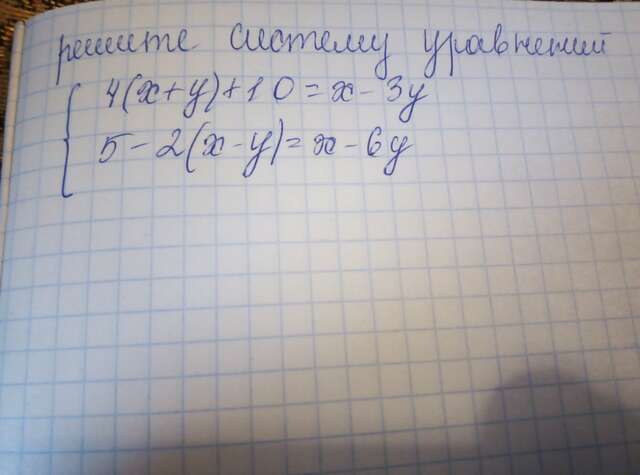 решите систему уравнений
4(x+y)+10=x-3y
5-2(x-y)=x-6y